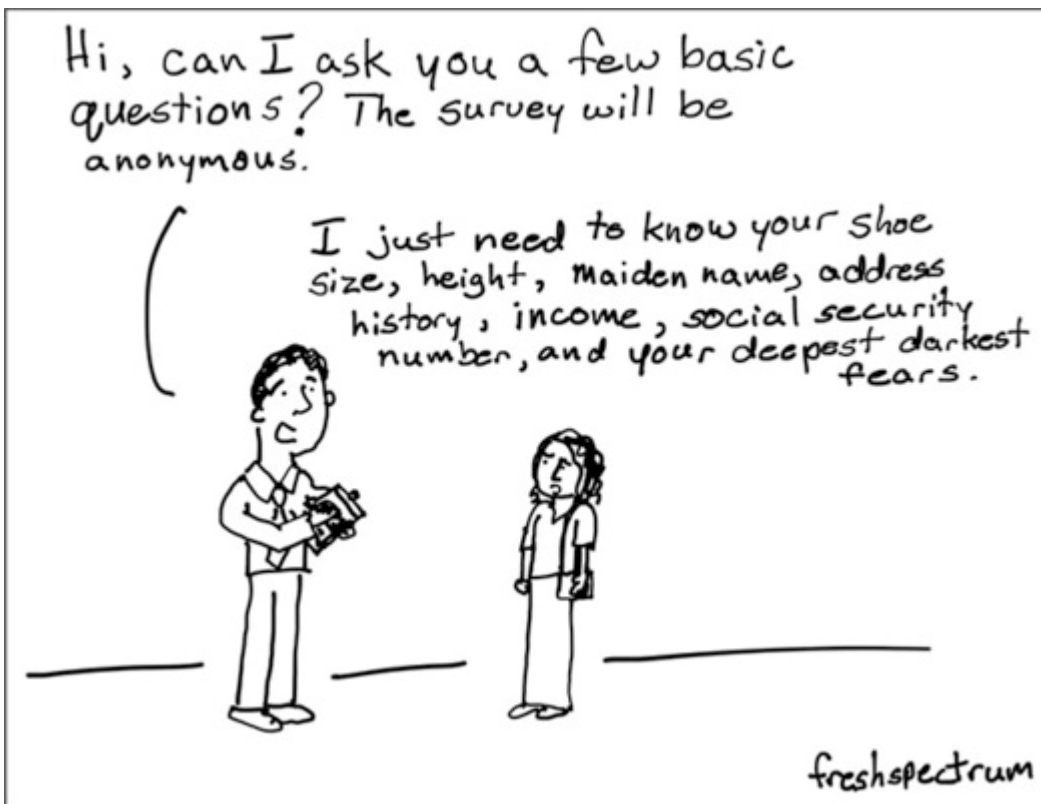 Hi, can I ask you a few basic
questions? The survey will be
anonymous.
I just need to know your shoe
size, height, maiden name, address
history, income, social security
number, and your deepest darkest
fears.
freshspectrum